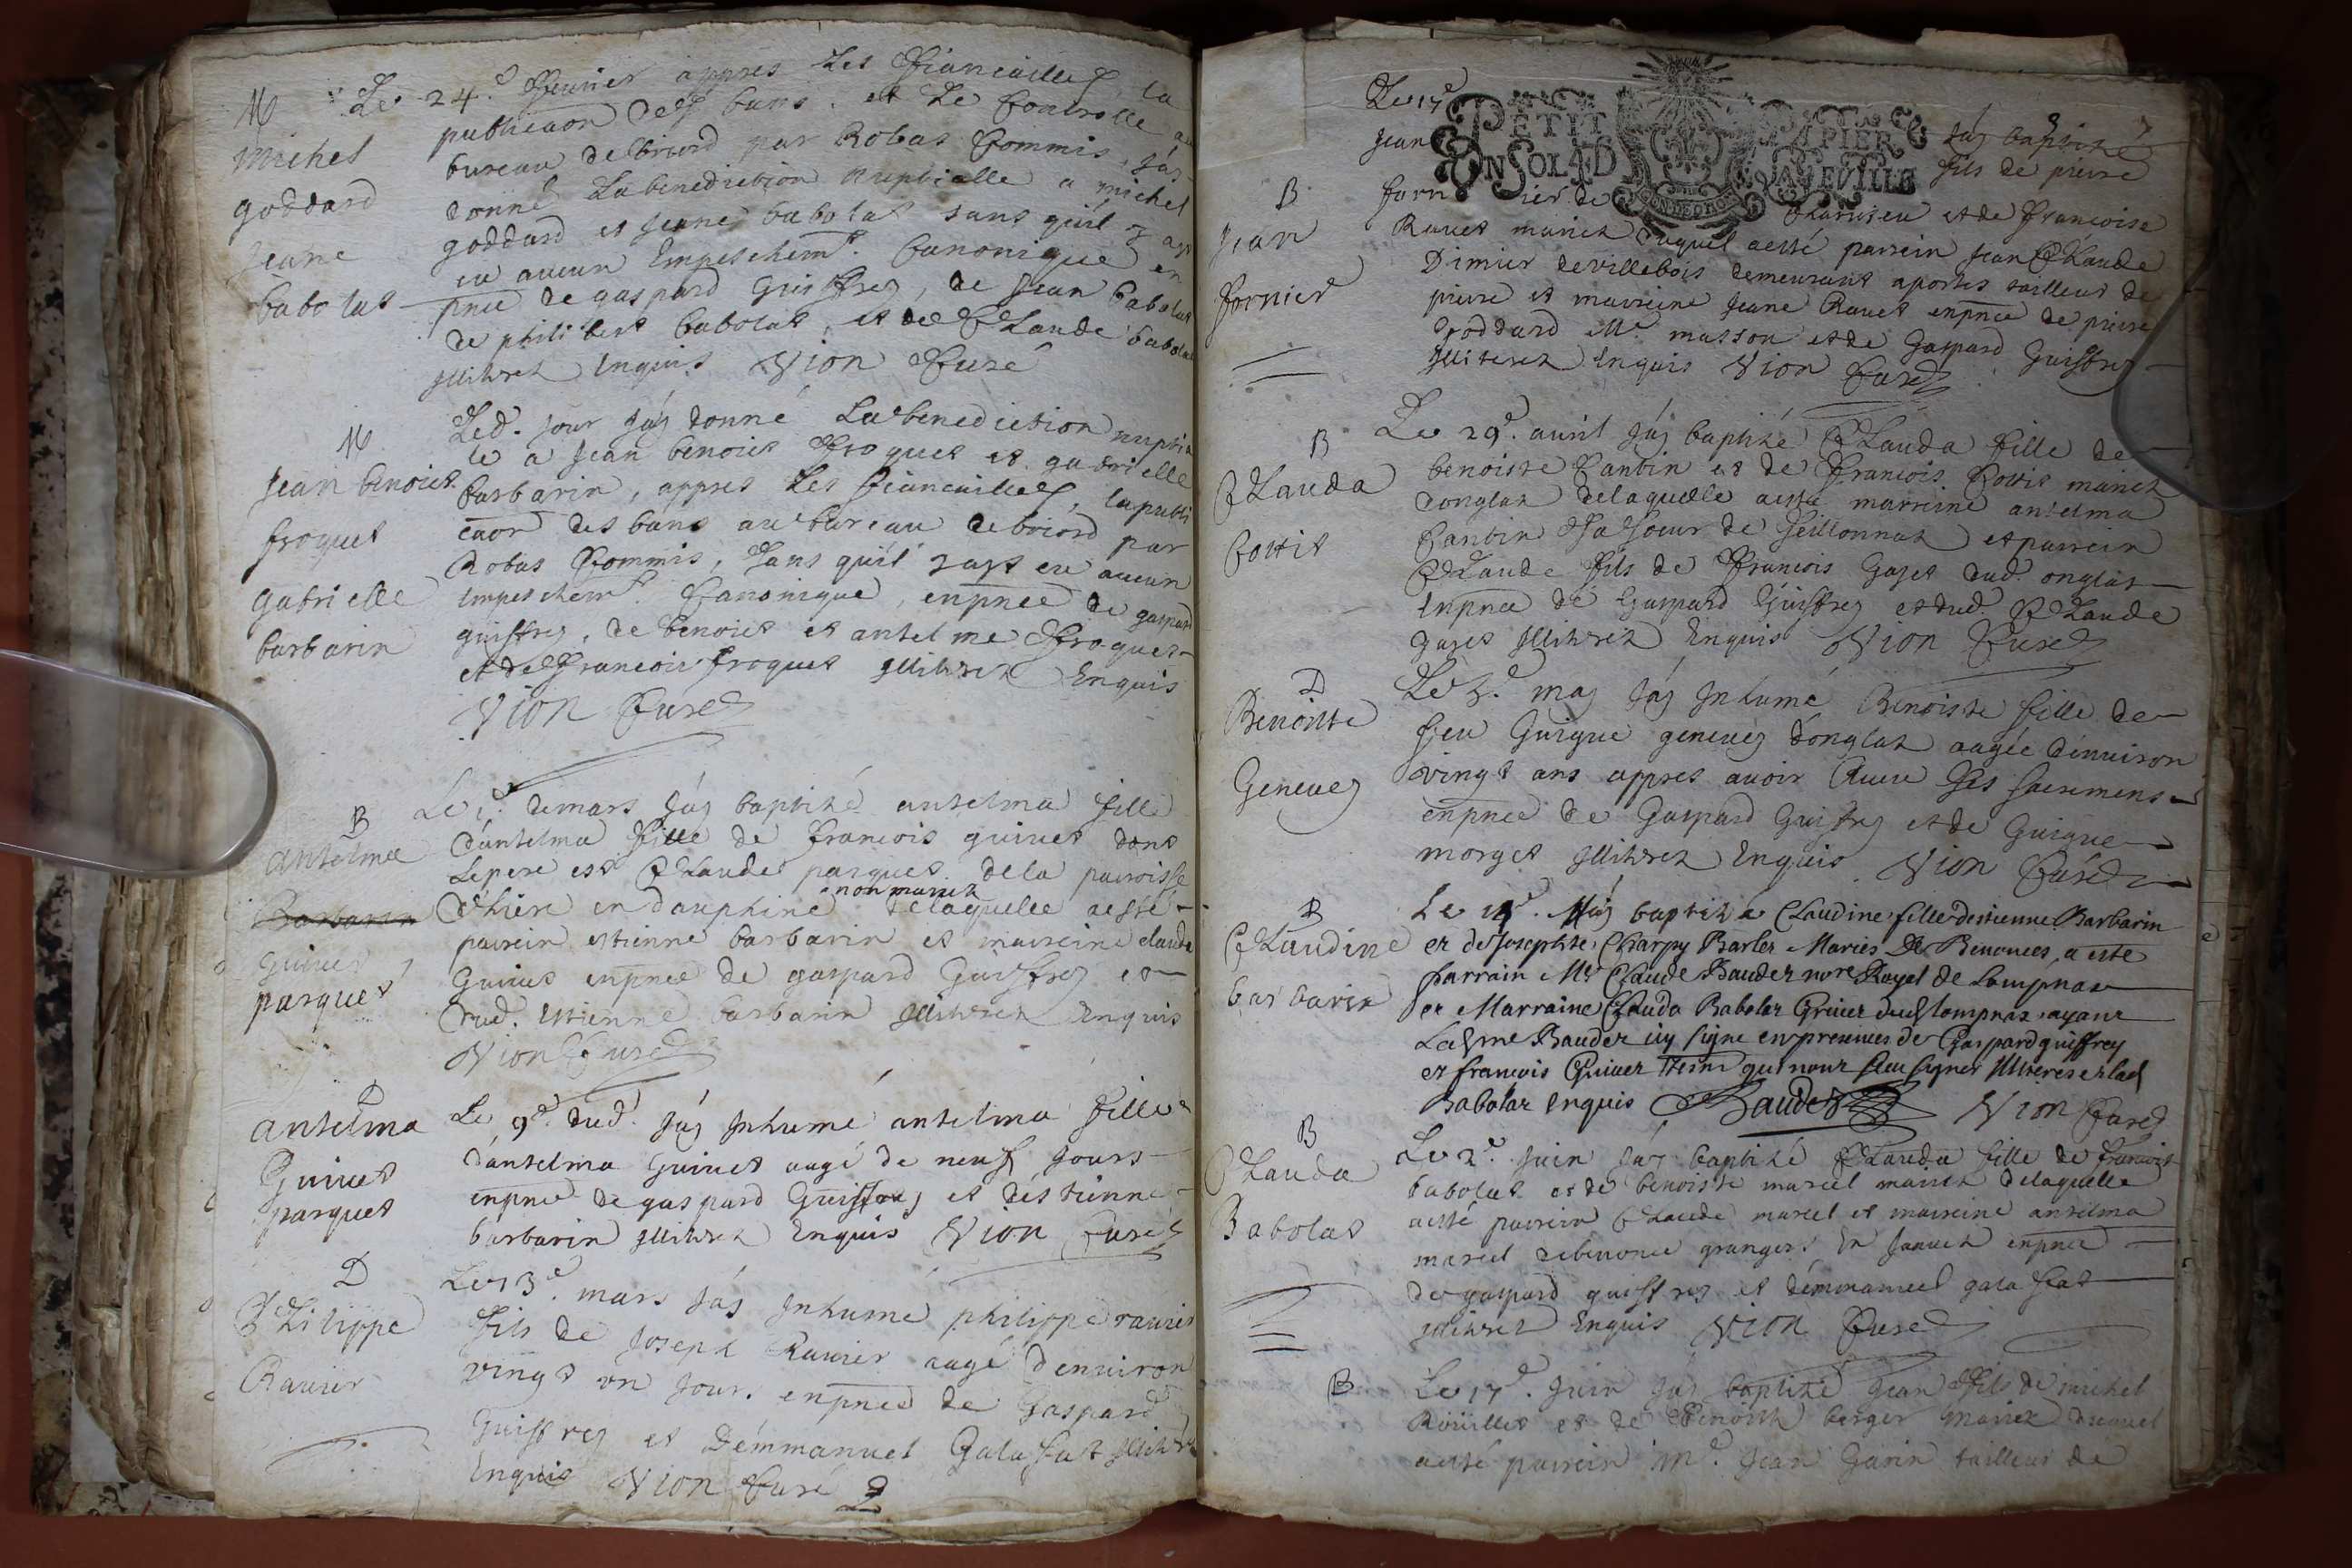 M
Michel
goddard
Jeane
babolat
Le 24.e feurier appres Les fiancailles la
publicaon des bans. et Le Controlle au
bureau de briord par Robat Commis, Jay
donné La benediction nuptialle a michel
goddard et Jeane babolat sans quil y ayt
eu aucun Empeschemt. Canonique en
pnce de gaspard Guiffrey, de Jean babolat
de philibert babolat, et de Claude babolat
Jllitrez Enquis Vion Curé
M
Jean benoict
froquet
gabrielle
barbarin
Led. jour Jay donné La benediction nuptia
le a Jean benoict froquet et gabrielle
barbarin, appres Les fiancailles, la publi
caon des bans au bureau de briord par
Robat Commis, Sans quil y ayt eu aucun
Empeschemt. Canonique, enpnce de gaspard
guiffrey, de benoict et antelme froquet
et de francois froquet Jllitrez Enquis
Vion Curé
B
antelma
Barbarin
Guinet
parquet
Le 1.er de mars Jay baptizé antelma fille
d'antelma fille de francois guinet dont
Le pere est Claude parquet de la parroisse
d'hiere en dauphiné non mariez de laquelle a esté
parrein estienne barbarin et marreine claude
Guinet enpnce de gaspard Guiffrey et
dud. Estienne barbarin Jllitrez Enquis
Vion Curé
D
antelma
Guinet
parquet
Le 9.e dud. Jay Jnhumé antelma fille
d'antelma Guinet aagé de neuf Jours
enpnce de gaspard Guiffrey et d'estienne
barbarin Jllitrez Enquis Vion Curé
D
Philippe
Rauier
Le 13.e mars Jay Jnhumé philippe rauier
fils de Joseph Rauier aagé denuiron
vingt vn Jour. enpnce de Gaspard
Guiffrey et D'emmanuel Galaffat Jllitrez
Enquis Vion Curé
2
PETIT PAPIER
UN SOL 4 D LA FEVILLE
B
Jean
fornier
Le 17.e Jay baptizé
Jean fils de pierre
forn ier de Charuieu et de francoise
Rauet mariez duquel a esté parrein Jean Claude
Dimier de villebois demeurant a portes tailleur de
pierre et marreine Jeane Rauet enpnce de pierre
Goddard Me. masson et de Gaspard Guiffrey
Jlliterez Enquis Vion Curé
B
Clauda
Cottit
Le 29.e auril Jay baptizé Clauda fille de
benoiste Cantin et de francois Cottit mariez
d'onglas de laquelle a esté marreine antelma
Cantin Sa Soeur de Seillonnaz et parrein
Claude fils de francois Gazet dud. onglas
Enpnce de Gaspard Guiffrey et dud. Claude
gazet Jllitrez Enquis Vion Curé
D
Benoiste
Geneuey
Le 5.e may Jay Jnhumé Benoiste fille de
feu Guigue geneuey d'onglas aagée denuiron
vingt ans appres auoir Receu Ses Sacremens
enpnce de Gaspard Guiffrey et de Guigue
morget Jllitrez Enquis Vion Curé
B
Claudine
barbarin
Le 14.e May baptizé Claudine fille destienne Barbarin
et de Josephte Charpy Barlet Mariés De Benonces, a este
parrain Mr Claude Baudet nore Royal de Lompnas
et Marraine Clauda Babolat Griuet dud Lompnaz ayant
Led. me Baudet icy signe en presences de Gaspard guiffrey
et francois Guinet tesms qui nont sceu signer Illiteres et lad
Babolat Enquis Baudet Vion Curé
B
Clauda
Babolat
Le 2.e Juin Jay baptizé Clauda fille de francois
babolat et de benoiste marcel mariez de laquelle
a esté parrein Claude marcel et marreine antelma
marcel de benonce grangers En Januez enpnce
de gaspard guiffrey et d'emmanuel galaffat
Jllitrez Enquis Vion Curé
B
Le 17.e Juin Jay baptizé Jean fils de michel
Roüillet et de Benoiste berger mariez duquel
a esté parrein me. Jean Garin tailleur de